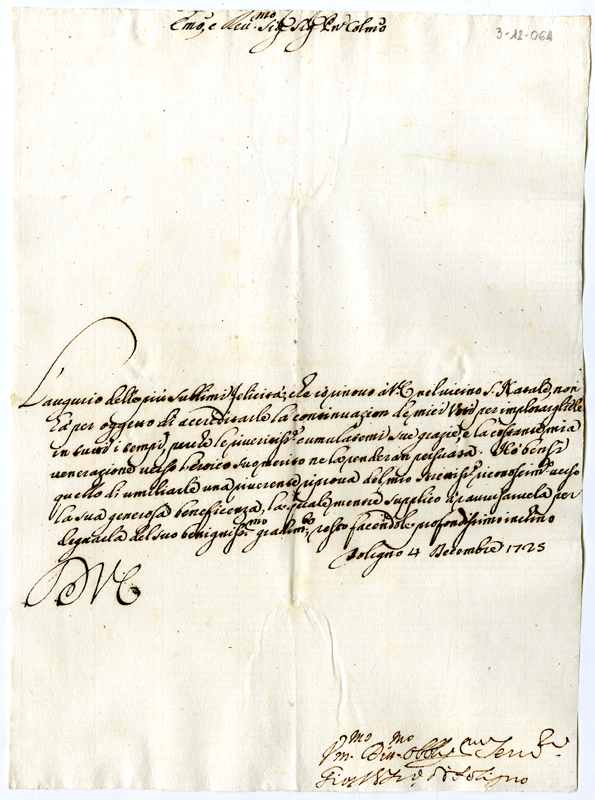 Em.o, e Reu.mo Sig.r Sig.r Pn Colmo
3-12-06A
L'augurio delle più sublimi felicità, che io rinouo à VE nel vicino S. Natale, non
hà per oggetto di accreditarle la continuazion de miei Voti per implorargliele
in tutti i tempi, perche le riueritiss.e cumulatemi sue grazie, e la costante mia
venerazione verso l'eroico suo merito ne la renderan persuasa. Hò bensì
quello di umiliarle una riuerente riproua del mio riconoscim.to verso
la sua generosa beneficenza, la quale mentre supplico di
degnarla del suo benigniss.mo gradim.to, resto facendole profondissimo inchino
Foligno 4 Decembre 1725
D V E
Vm.mo Diu.mo Obblig. Seru.re
di Foligno